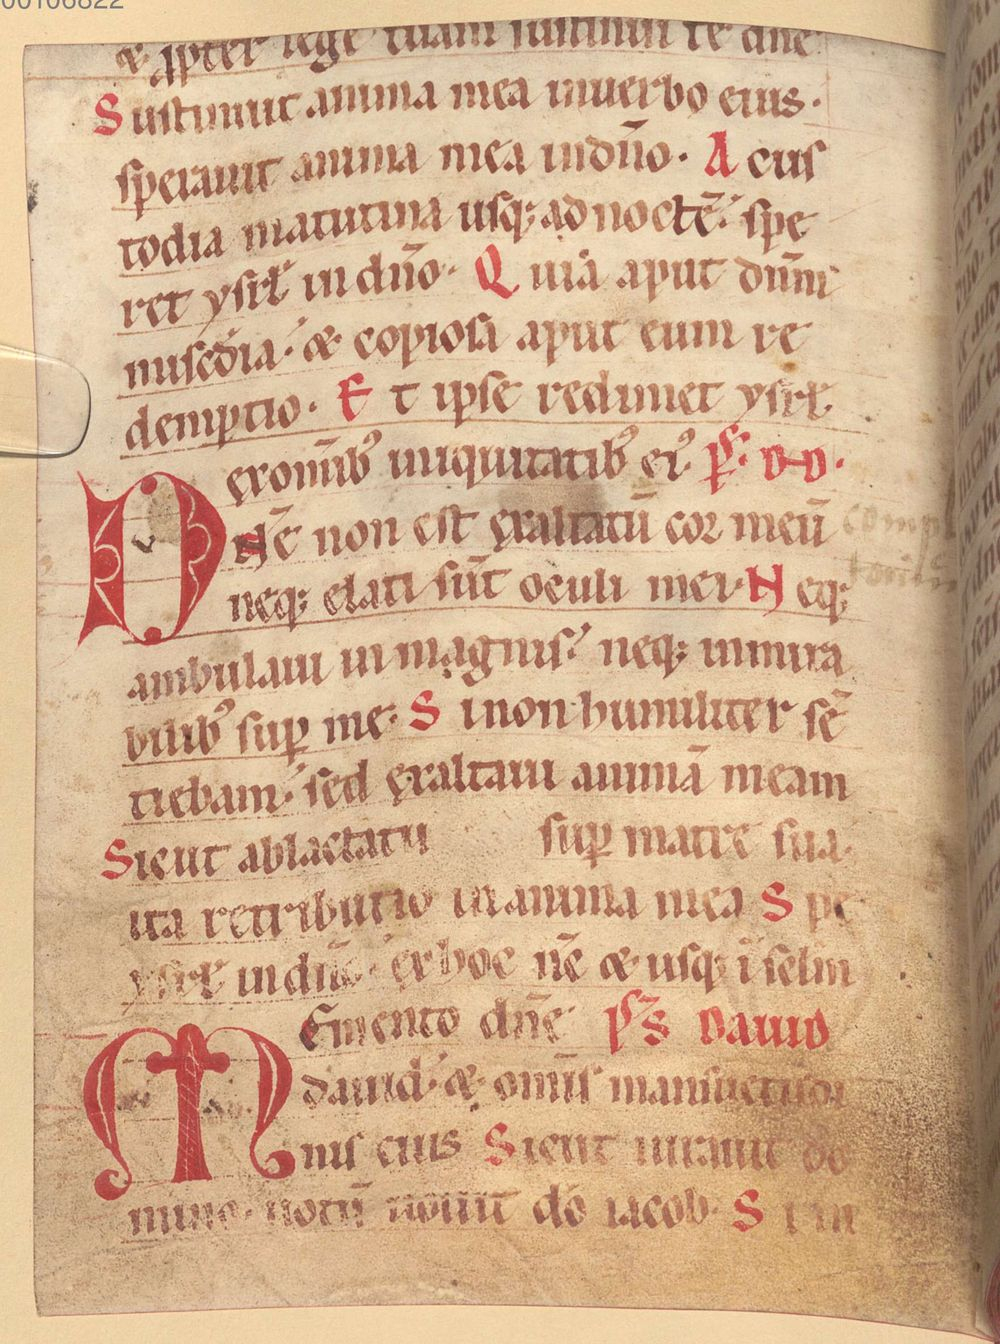 00106822
& ꝓpter legē tuam sustinui te dn̄e
Sustinuit anima mea inuerbo eius·
sperauit anima mea indn̄o· A cus
todia matutina usq; ad noctē· spe
ret ysrl̄ in dn̄o· Quia aput dn̄m
mis̄cdia· & copiosa aput eum re
demptio· Et ipse redimet ysrl̄
exomībꝰ iniquitatibꝰ eiꝰ. pS̄· DD·
DNE non est exaltatū cor meū
neq; elati sūt oculi mei· Neq;
ambulaui in magnis· neq; inmira
bilibꝰ sup̄ me· Si non humiliter sē
tiebam· sed exaltaui animā meam
Sicut ablactatū sup̄ matre sua·
ita retributio in anima mea Spe
ysrl̄ in dn̄o· ex hoc n̄c & usq; ī sclm̄
MEmento dn̄e pS̄s DAUID
dauid· & omīs mansuetudi
nis eius Sicut iurauit do
mino· uotū uouit dō iacob· Si in